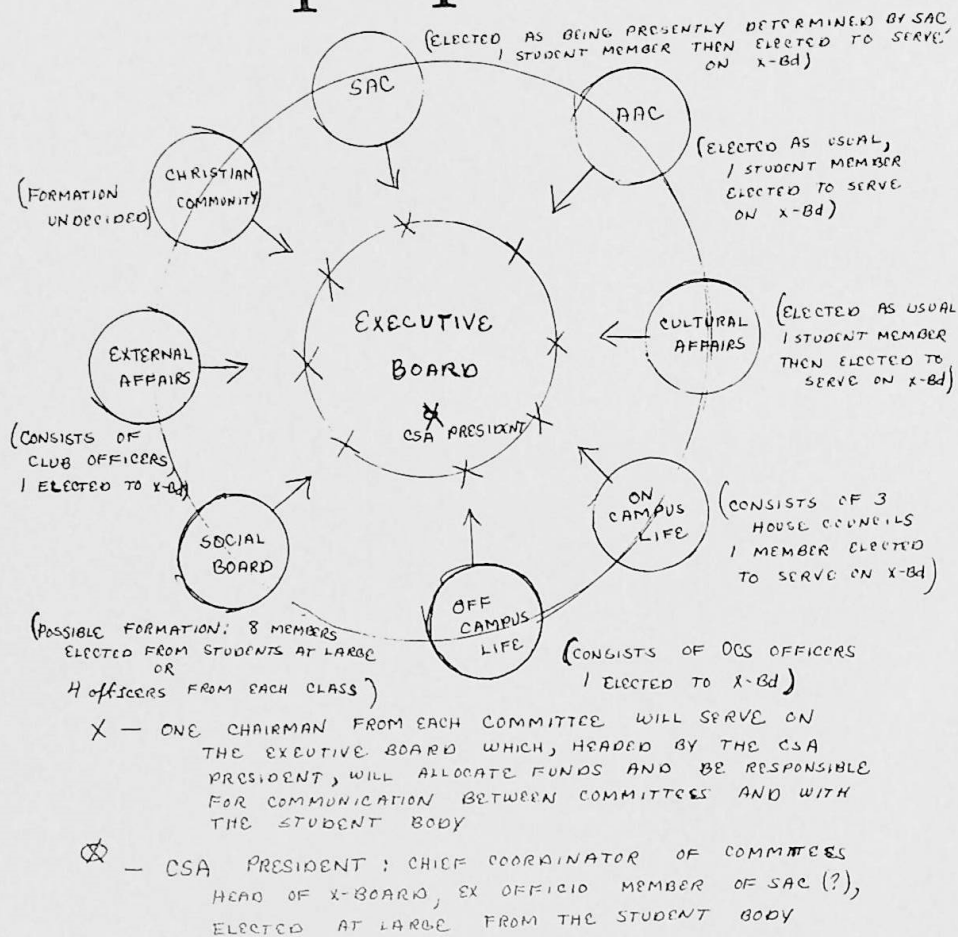 (ELECTED AS BEING PRESENTLY DETERMINED BY SAC,
1 STUDENT MEMBER THEN ELECTED TO SERVE
ON X-Bd)
SAC
AAC
(ELECTED AS USUAL,
1 STUDENT MEMBER
ELECTED TO SERVE
ON X-Bd)
CHRISTIAN
COMMUNITY
(FORMATION
UNDECIDED)
EXECUTIVE
BOARD
CSA PRESIDENT
CULTURAL
AFFAIRS
(ELECTED AS USUAL
1 STUDENT MEMBER
THEN ELECTED TO
SERVE ON X-Bd)
EXTERNAL
AFFAIRS
(CONSISTS OF
CLUB OFFICERS,
1 ELECTED TO X-Bd)
ON
CAMPUS
LIFE
(CONSISTS OF 3
HOUSE COUNCILS
1 MEMBER ELECTED
TO SERVE ON X-Bd)
SOCIAL
BOARD
(POSSIBLE FORMATION: 8 MEMBERS
ELECTED FROM STUDENTS AT LARGE
OR
4 OFFICERS FROM EACH CLASS)
OFF
CAMPUS
LIFE
(CONSISTS OF OCS OFFICERS
1 ELECTED TO X-Bd)
X — ONE CHAIRMAN FROM EACH COMMITTEE WILL SERVE ON
THE EXEUTIVE BOARD WHICH, HEADED BY THE CSA
PRESIDENT, WILL ALLOCATE FUNDS AND BE RESPONSIBLE
FOR COMMUNICATION BETWEEN COMMITTEES AND WITH
THE STUDENT BODY
— CSA PRESIDENT: CHIEF COORDINATOR OF COMMITTEES
HEAD OF X-BOARD, EX OFFICIO MEMBER OF SAC (?),
ELECTED AT LARGE FROM THE STUDENT BODY